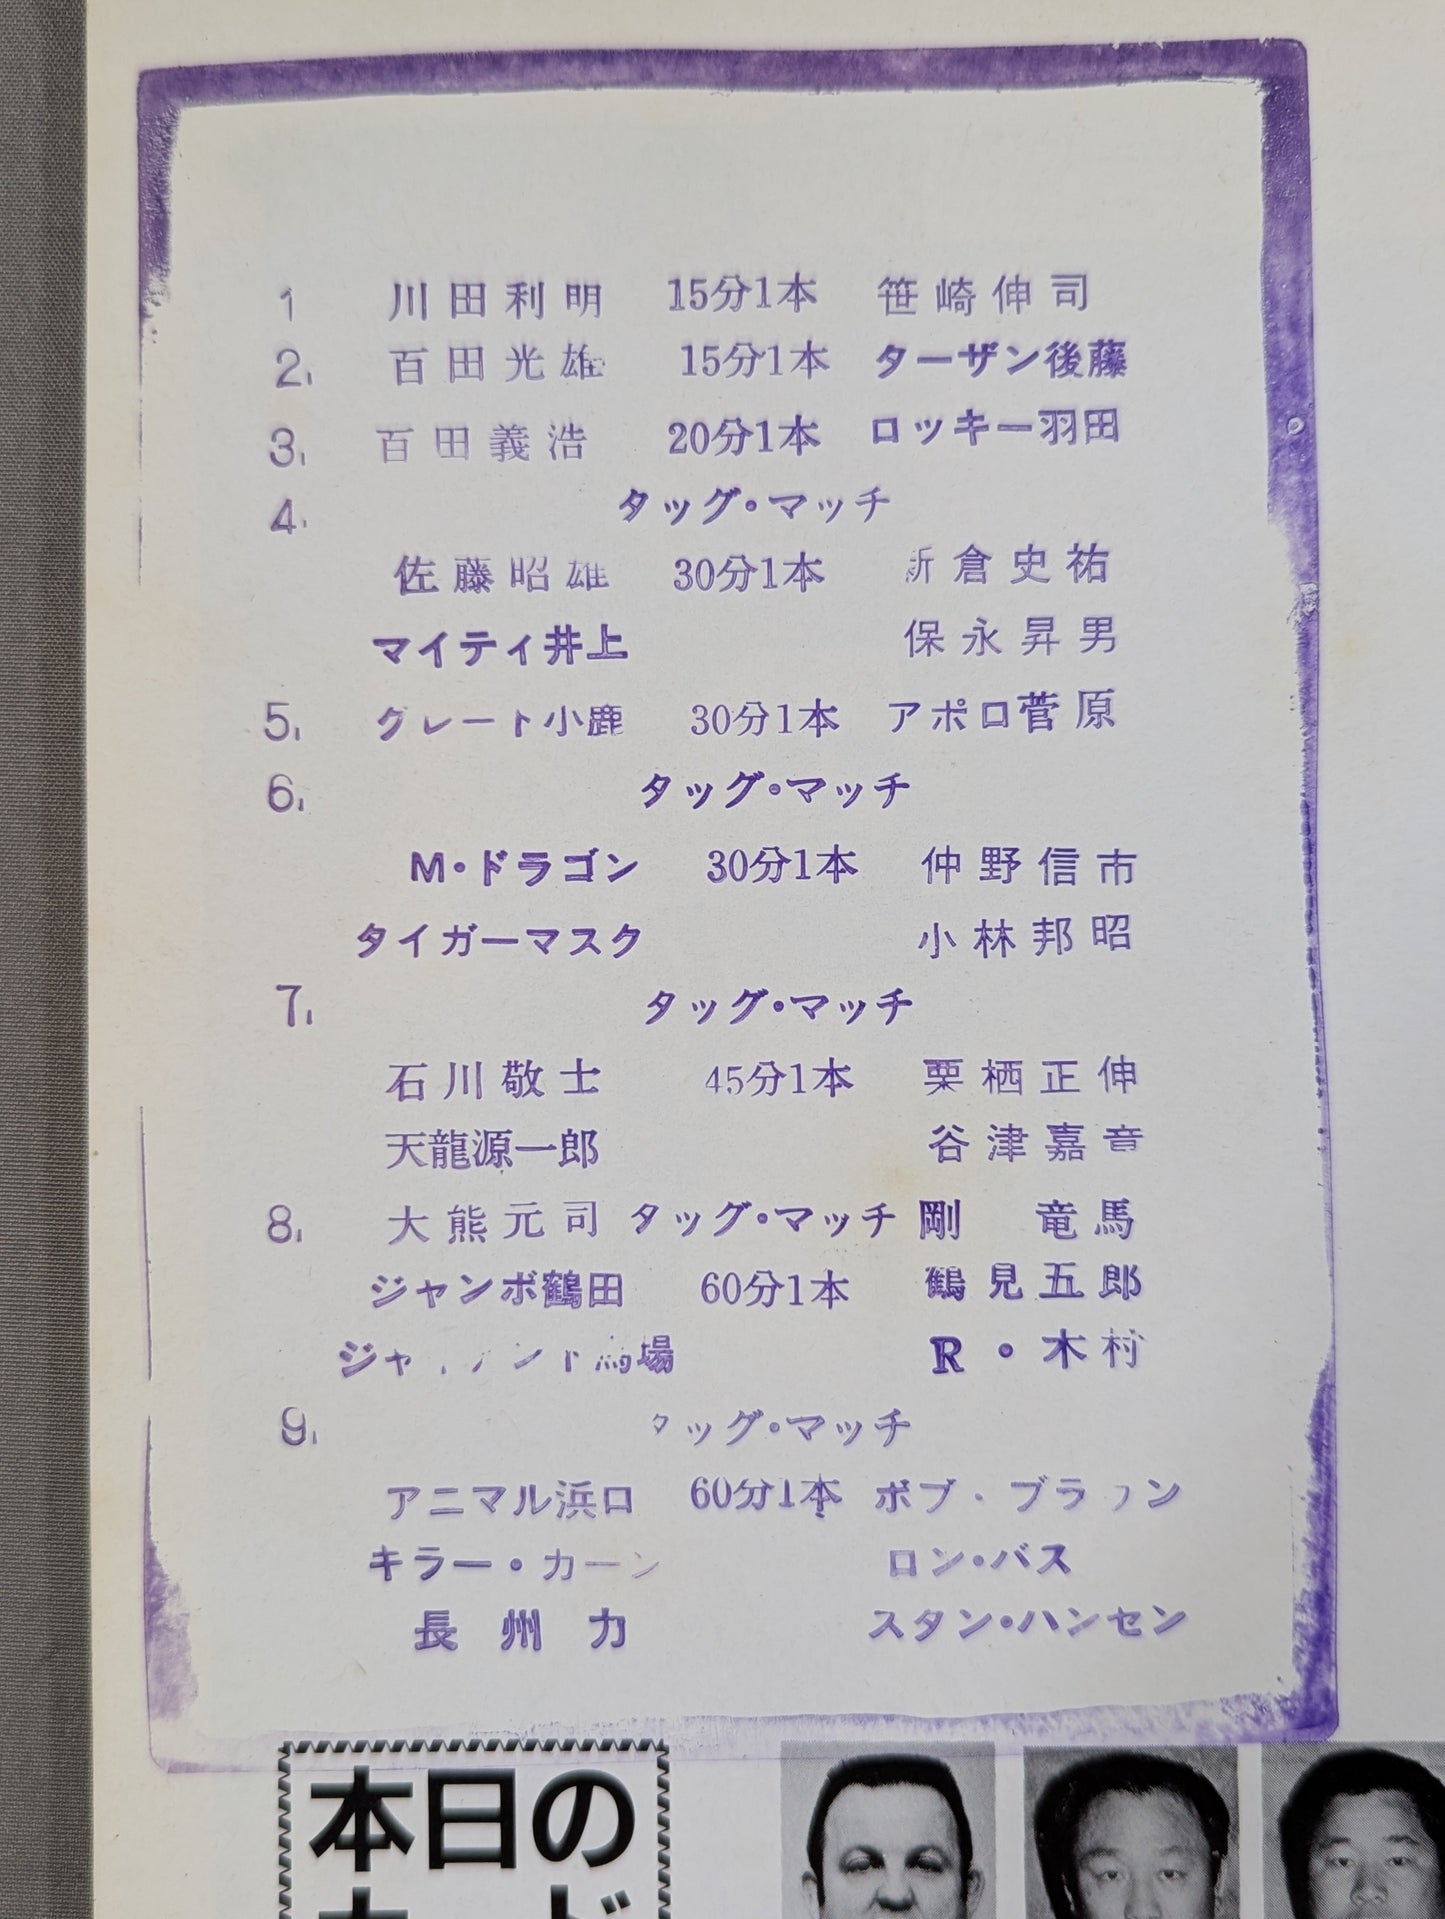 1 川田利明 15分1本 笹崎伸司
2. 百田光雄 15分1本 ターザン後藤
3. 百田義浩 20分1本 ロッキー羽田
4. タッグ・マッチ
佐藤昭雄 30分1本 新倉史祐
マイティ井上 保永昇男
5. グレート小鹿 30分1本 アポロ菅原
6. タッグ・マッチ
M・ドラゴン 30分1本 仲野信市
タイガーマスク 小林邦昭
7. タッグ・マッチ
石川敬士 45分1本 栗栖正伸
天龍源一郎 谷津嘉章
8. 大熊元司 タッグ・マッチ 剛 竜馬
ジャンボ鶴田 60分1本 鶴見五郎
ジャイアント馬場 R・木村
9. タッグ・マッチ
アニマル浜口 60分1本 ボブ・ブラウン
キラー・カーン ロン・バス
長州力 スタン・ハンセン
本日の